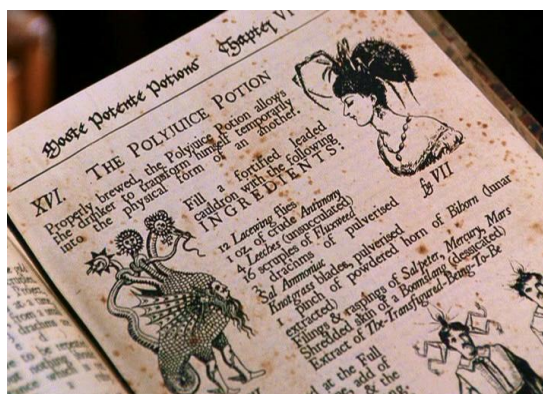 Moste Potente Potions Chapter VI
XVI. THE POLYJUICE POTION
Properly brewed, the Polyjuice Potion allows
the drinker to transform himself temporarily
into the physical form of an another.
Fill a fortified leaded
cauldron with the following
INGREDIENTS:
12 Lacewing flies
1 oz of crude Antimony
4 Leeches (unsucculated)
16 scruples of Fluxweed
3 drachms of pulverised
Sal Ammoniac
Knotgrass blades, pulverised
1 pinch of powdered horn of Bihorn
extracted)
Filings & raspings of Salpeter, Mercury, Mars
Shredded skin of a Boomslang (dessicated)
Extract of The-Transfigured-Being-To-Be
fig VII
at the Full
add of
& the